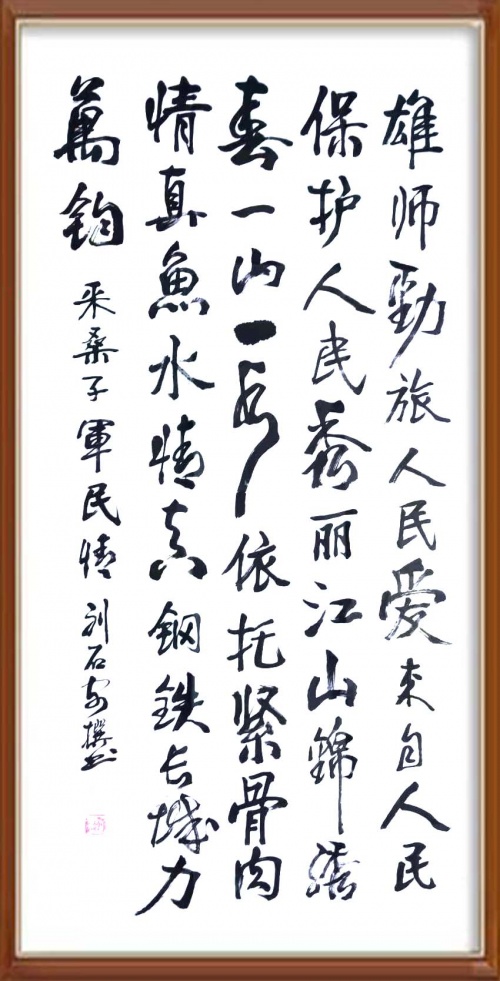 雄师勁旅人民爱来自人民
保护人民秀丽江山錦绣
春一山一依托紧骨肉
情真魚水情真鋼鉄长城力
萬鈞
采桑子軍民情刘石撰书